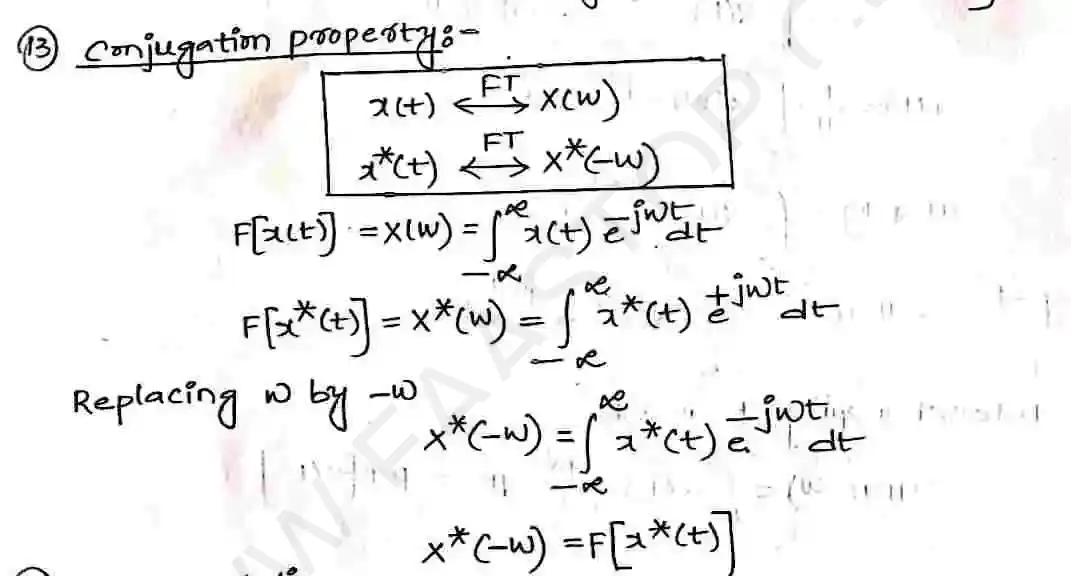 (13) Conjugation property:-
x(t) <-FT-> X(w)
x*(t) <-FT-> X*(-w)
F[x(t)] = X(w) = ∫_{-∞}^{∞} x(t) e^{-jwt} dt
F[x*(t)] = X*(w) = ∫_{-∞}^{∞} x*(t) e^{+jwt} dt
Replacing w by -w
X*(-w) = ∫_{-∞}^{∞} x*(t) e^{-jwt} dt
X*(-w) = F[x*(t)]